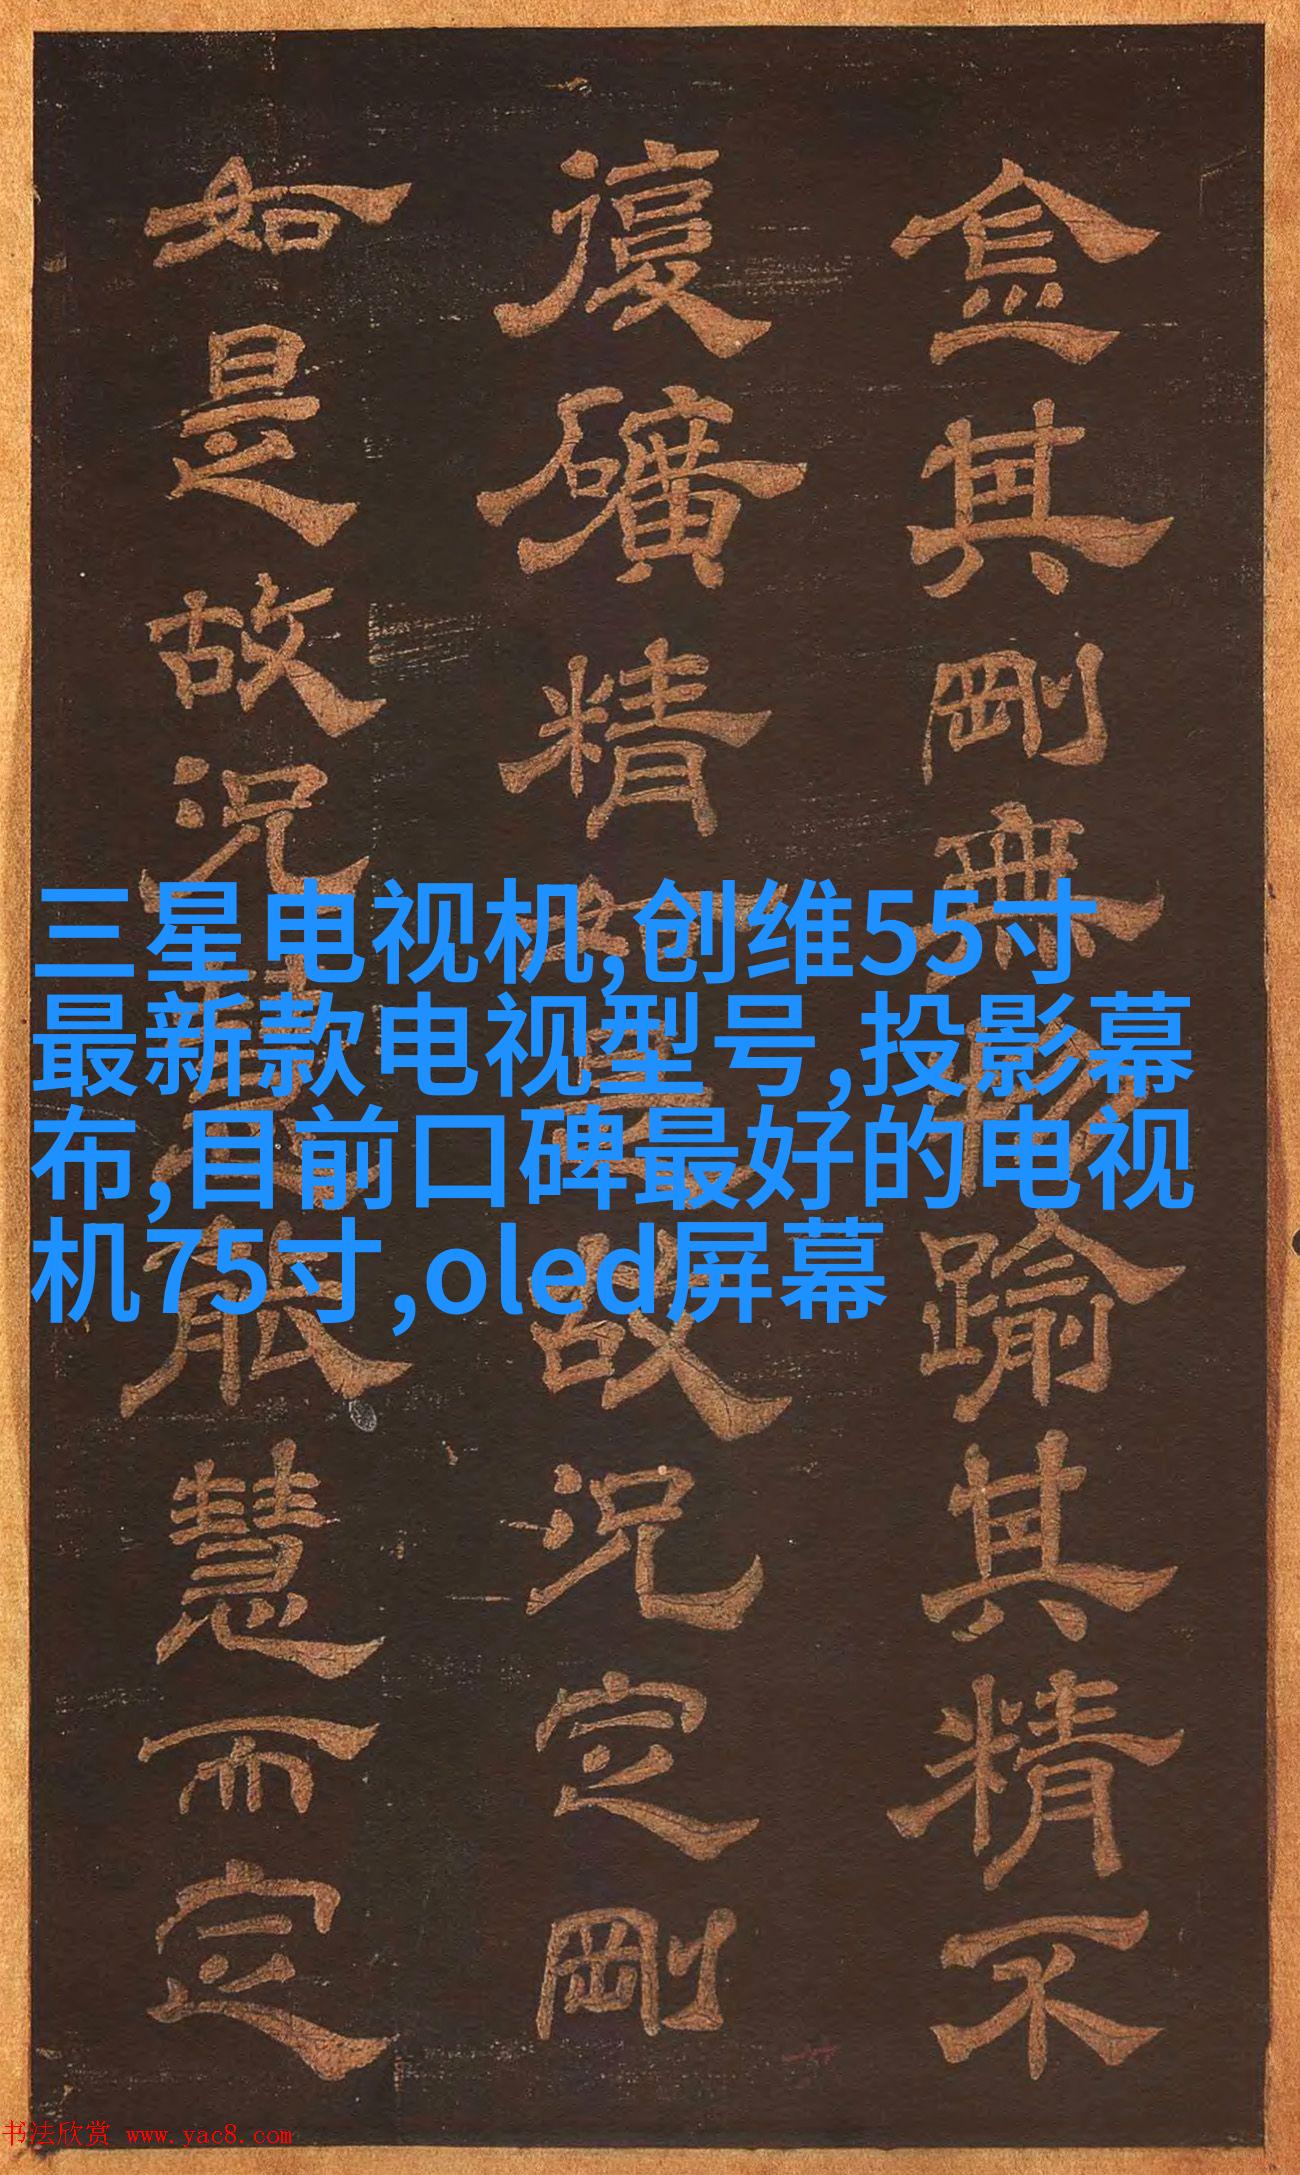 金其剛無踰其精不
復礦精如是故況定剛
如是故況能慧而定
三星电视机,创维55寸
最新款电视型号,投影幕
布,目前口碑最好的电视
机75寸,oled屏幕
书法欣赏 www.yac8.com